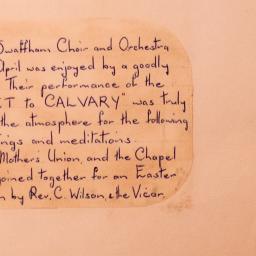 Swaffham Choir and Orchestra
April was enjoyed by a goodly
Their performance of the
ET to CALVARY" was truly
the atmosphere for the following
ngs and meditations.
Mothers' Union, and the Chapel
joined together for an Easter
n by Rev. C. Wilson, & the Vicar.